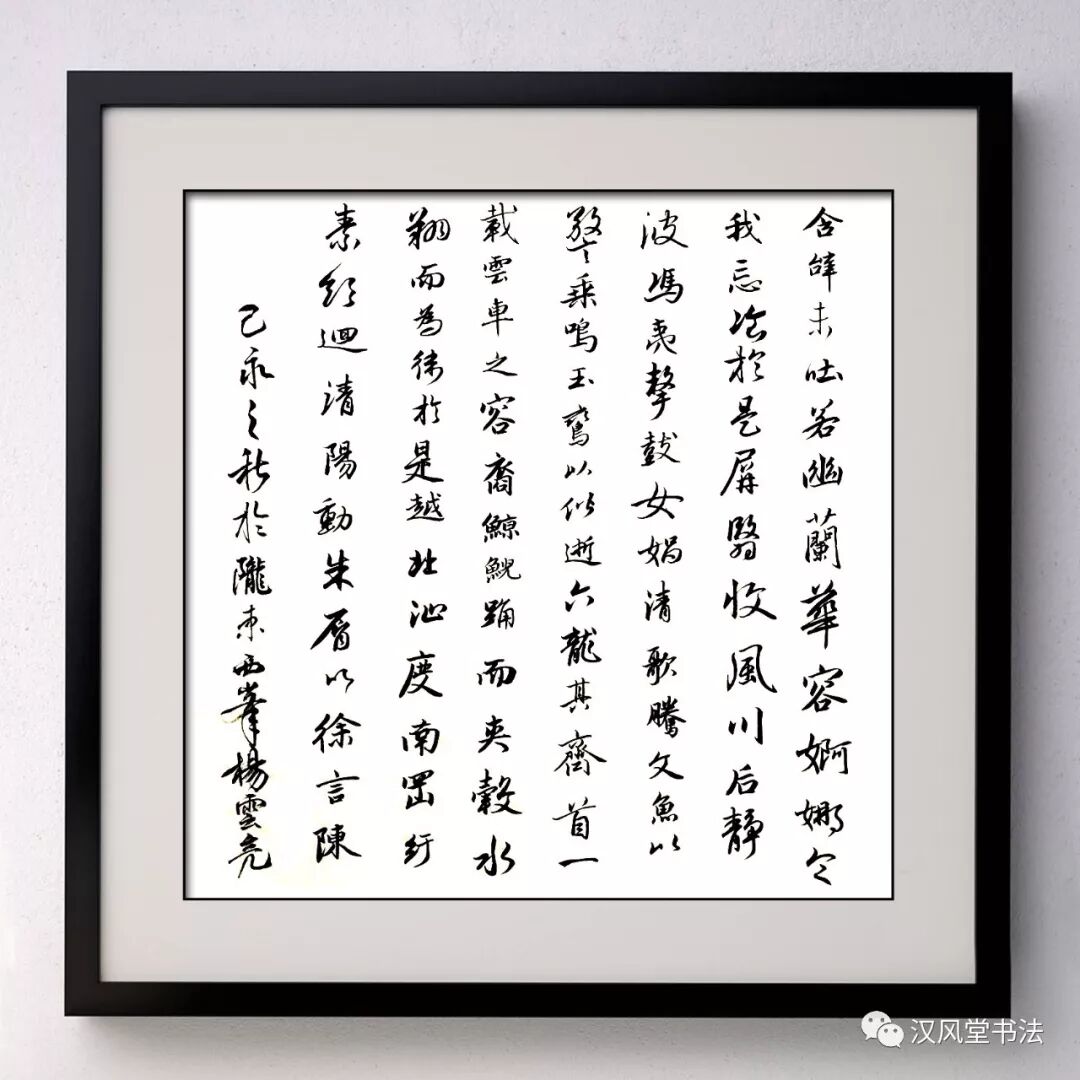 含辭未吐若幽蘭華容婀娜令
我忘飡於是屏翳收風川后靜
波馮夷擊鼓女娲清歌騰文魚以
警乘鳴玉鸞以偕逝六龍其齊首一
載雲車之容裔鯨鯢踊而夾轂水
翔而為衛於是越北沚度南岡紆
素領迴清陽動朱脣以徐言陳
己亥之秋於隴東西峯楊雲亮
汉风堂书法